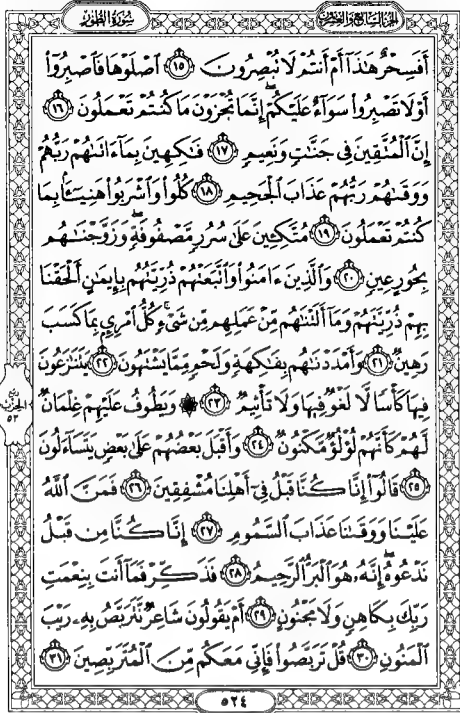 سُورَةُ الطُّورِ
الجُزءُ السَّابِعُ وَالعِشْرُونَ
أَفَسِحْرٌ هَٰذَآ أَمْ أَنتُمْ لَا تُبْصِرُونَ ﴿١٥﴾ ٱصْلَوْهَا فَٱصْبِرُوٓا۟
أَوْ لَا تَصْبِرُوا۟ سَوَآءٌ عَلَيْكُمْ ۖ إِنَّمَا تُجْزَوْنَ مَا كُنتُمْ تَعْمَلُونَ ﴿١٦﴾
إِنَّ ٱلْمُتَّقِينَ فِى جَنَّٰتٍ وَنَعِيمٍ ﴿١٧﴾ فَٰكِهِينَ بِمَآ ءَاتَىٰهُمْ رَبُّهُمْ
وَوَقَىٰهُمْ رَبُّهُمْ عَذَابَ ٱلْجَحِيمِ ﴿١٨﴾ كُلُوا۟ وَٱشْرَبُوا۟ هَنِيٓـًٔۢا بِمَا
كُنتُمْ تَعْمَلُونَ ﴿١٩﴾ مُتَّكِـِٔينَ عَلَىٰ سُرُرٍ مَّصْفُوفَةٍ ۖ وَزَوَّجْنَٰهُم
بِحُورٍ عِينٍ ﴿٢٠﴾ وَٱلَّذِينَ ءَامَنُوا۟ وَٱتَّبَعَتْهُمْ ذُرِّيَّتُهُم بِإِيمَٰنٍ أَلْحَقْنَا
بِهِمْ ذُرِّيَّتَهُمْ وَمَآ أَلَتْنَٰهُم مِّنْ عَمَلِهِم مِّن شَىْءٍ ۚ كُلُّ ٱمْرِئٍۭ بِمَا كَسَبَ
رَهِينٌ ﴿٢١﴾ وَأَمْدَدْنَٰهُم بِفَٰكِهَةٍ وَلَحْمٍ مِّمَّا يَشْتَهُونَ ﴿٢٢﴾ يَتَنَٰزَعُونَ
فِيهَا كَأْسًا لَّا لَغْوٌ فِيهَا وَلَا تَأْثِيمٌ ﴿٢٣﴾ ۞ وَيَطُوفُ عَلَيْهِمْ غِلْمَانٌ
لَّهُمْ كَأَنَّهُمْ لُؤْلُؤٌ مَّكْنُونٌ ﴿٢٤﴾ وَأَقْبَلَ بَعْضُهُمْ عَلَىٰ بَعْضٍ يَتَسَآءَلُونَ
﴿٢٥﴾ قَالُوٓا۟ إِنَّا كُنَّا قَبْلُ فِىٓ أَهْلِنَا مُشْفِقِينَ ﴿٢٦﴾ فَمَنَّ ٱللَّهُ
عَلَيْنَا وَوَقَىٰنَا عَذَابَ ٱلسَّمُومِ ﴿٢٧﴾ إِنَّا كُنَّا مِن قَبْلُ
نَدْعُوهُ ۖ إِنَّهُۥ هُوَ ٱلْبَرُّ ٱلرَّحِيمُ ﴿٢٨﴾ فَذَكِّرْ فَمَآ أَنتَ بِنِعْمَتِ
رَبِّكَ بِكَاهِنٍ وَلَا مَجْنُونٍ ﴿٢٩﴾ أَمْ يَقُولُونَ شَاعِرٌ نَّتَرَبَّصُ بِهِۦ رَيْبَ
ٱلْمَنُونِ ﴿٣٠﴾ قُلْ تَرَبَّصُوا۟ فَإِنِّى مَعَكُم مِّنَ ٱلْمُتَرَبِّصِينَ ﴿٣١﴾
الحزب
٥٣
٥٢٤